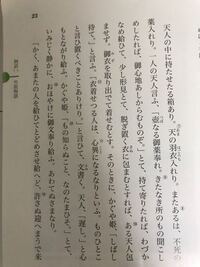 天人の中に持たせたる箱あり。天の羽衣入れり。またあるは、不死の
薬入れり。一人の天人言ふ、「壺なる御薬奉れ。きたなき所のもの聞こし
めしたれば、御心地あしからむものぞ。」とて、持て寄りたれば、わづか
なめ給ひて、少し形見とて、脱ぎ置く衣に包まむとすれば、ある天人包
ませず。御衣を取り出でて着せむとす。そのときに、かぐや姫、「しばし
待て。」と言ふ。「衣着せつる人は、心異になるなりといふ。ものひとこと
と言ひ置くべきことありけり。」と言ひて、文書く。天人、「遅し。」と心
もとながり給ふ。かぐや姫、「もの知らぬこと、なのたまひそ。」とて、
いみじく静かに、おほやけに御文奉り給ふ。あわてぬさまなり。
「かく、あまたの人を給ひてとどめさせ給へど、許さぬ迎へまうで来
23
物語
竹取物語